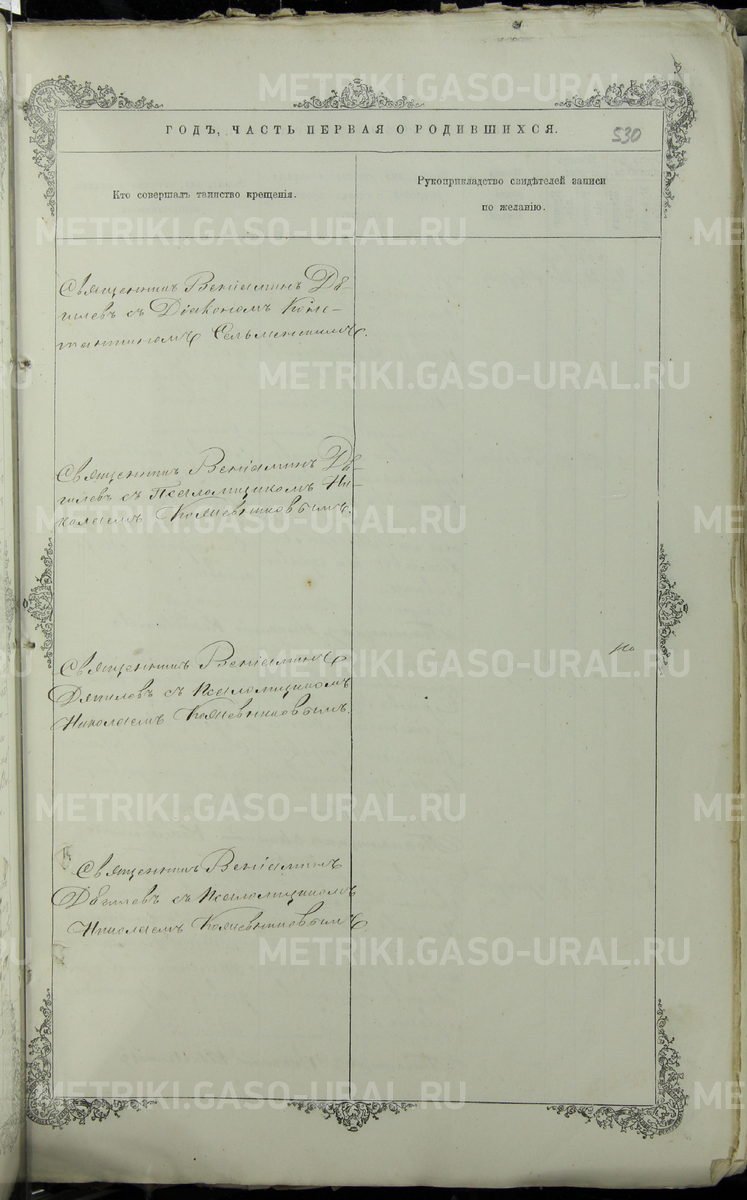 ГОДЪ, ЧАСТЬ ПЕРВАЯ О РОДИВШИХСЯ.
530
Кто совершалъ таинство крещенія.
Рукоприкладство свидѣтелей записи
по желанію.
Священникъ Веніаминъ Дѣ-
гилевъ съ Діакономъ Конс-
тантиномъ
Священникъ Веніаминъ Дѣ-
гилевъ съ Псаломщикомъ Ни-
колаемъ Кожевниковымъ.
Священникъ Веніаминъ
Дягилевъ съ Псаломщикомъ
Николаемъ Кожевниковымъ.
Священникъ Веніаминъ
Дѣгилевъ съ Псаломщикомъ
Николаемъ Кожевниковымъ.
METRIKI.GASO-URAL.RU